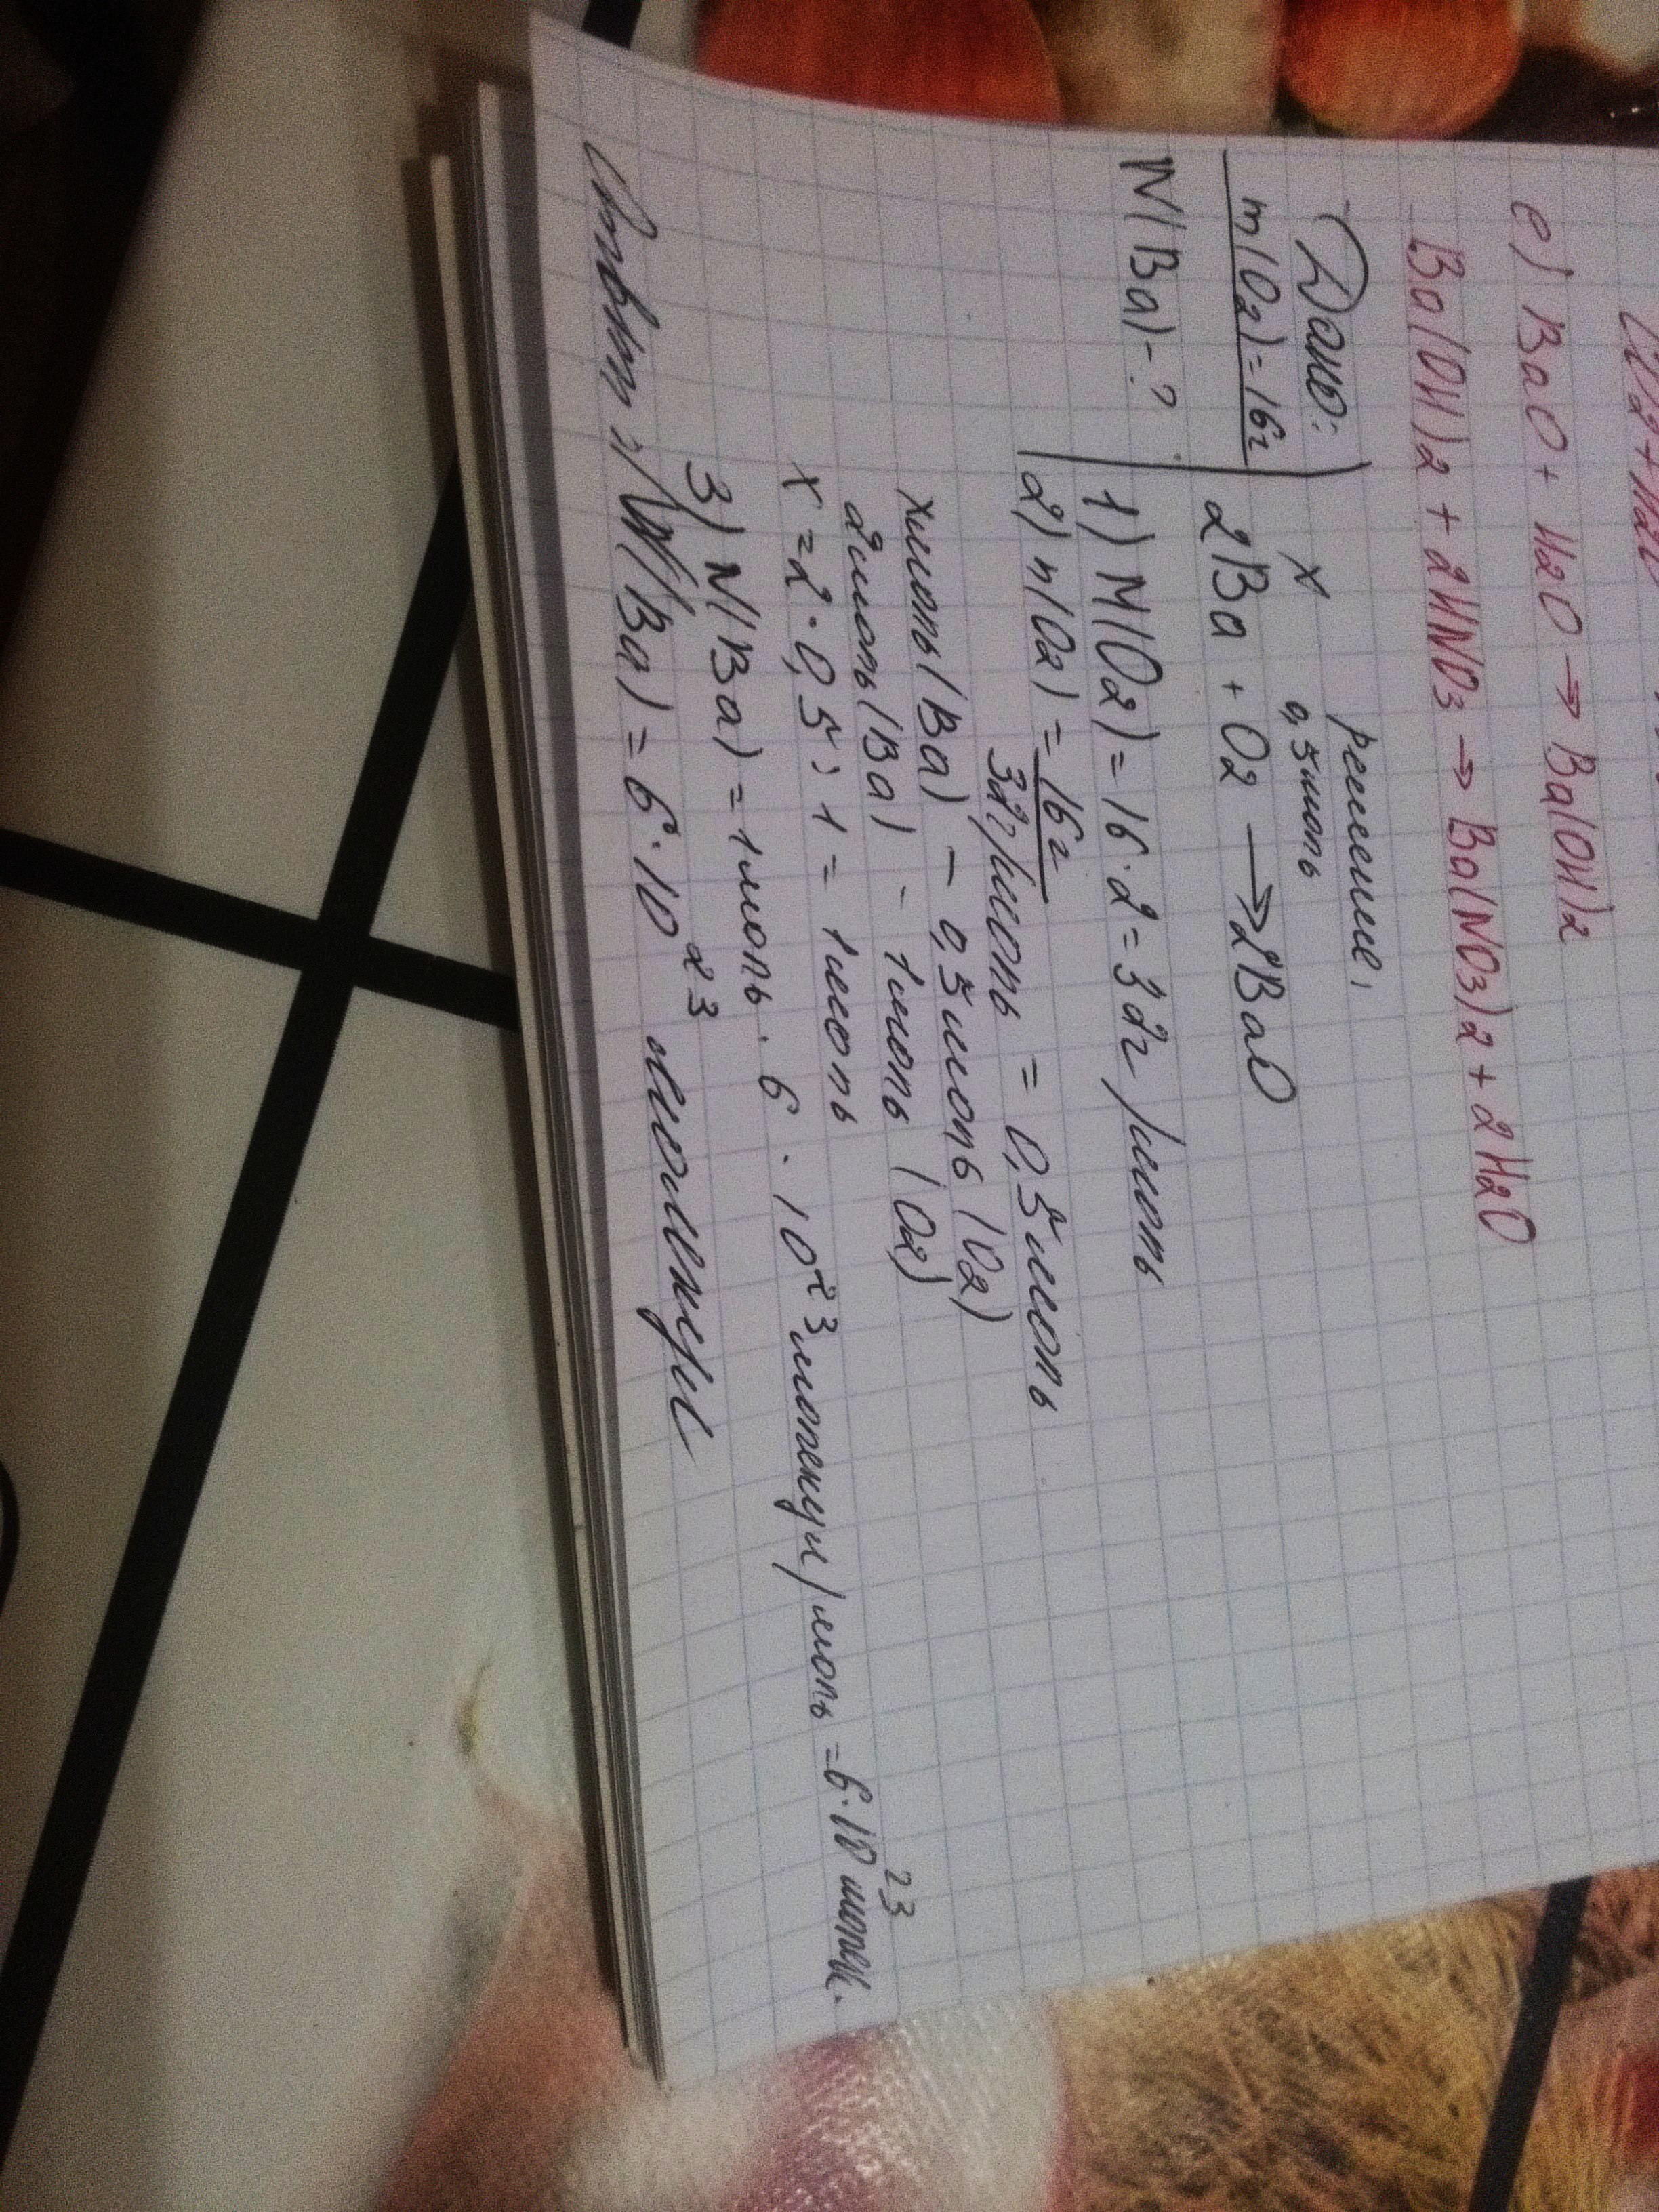 е) BaO + H2O → Ba(OH)2
Ba(OH)2 + 2HNO3 → Ba(NO3)2 + 2H2O
Дано:
m(O2)=16г
N(Ba)-?
решение:
x 0,5моль
2Ba + O2 → 2BaO
1) M(O2)=16·2=32г/моль
2) n(O2) = 16г / 32г/моль = 0,5моль
xмоль(Ba) – 0,5моль(O2)
2моль(Ba) – 1моль(O2)
x=2·0,5:1=1моль
3) N(Ba)=1моль·6·10²³молекул/моль=6·10²³молек.
Ответ: N(Ba)=6·10²³ молекул